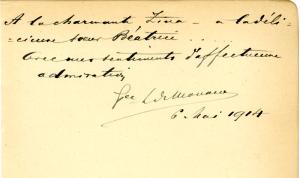 A la charmante Zina - a la déli-
cieuse sœur Béatrice . . . .
Avec mes sentiments d'affectueuse
admiration
de Monaco
6 Mai 1914